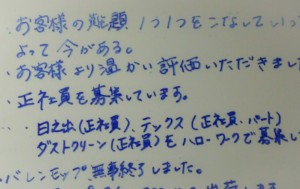 ・お客様の難題 1つ1つをこなしていって
よって今がある。
・お客様より温かい評価いただきました
・正社員を募集しています。
・日之出(正社員)、テックス(正社員・パート)
ダストクリーン(正社員)をハローワークで募集し
バレンモップ無事終了しました。